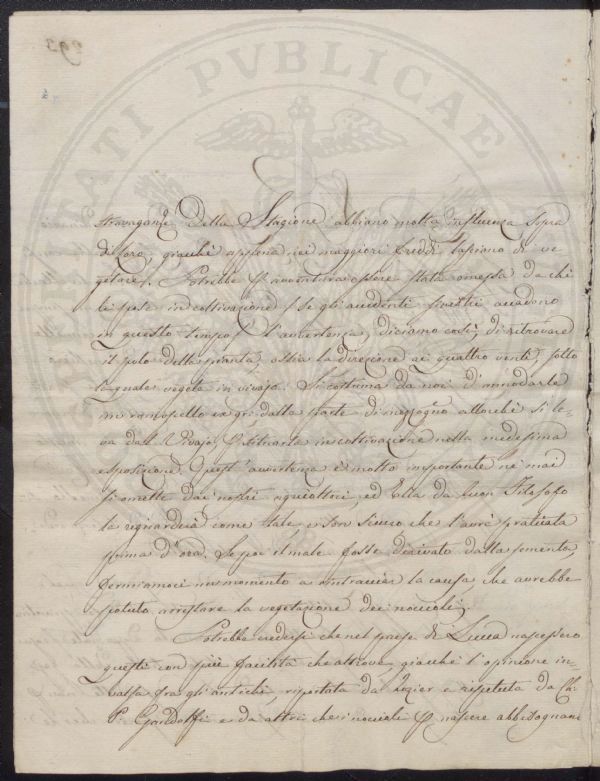 293
stravaganze della Stagione abbiano molta influenza sopra
di loro, giacchè appena nei maggiori freddi lasciano di ve
getare. Potrebbe p avventura essere stata omessa da chi
li pose in coltivazione (se gli accidenti sinistri accadono
in questo tempo) l'avvertenza, diciamo così, di ritrovare
il polo della pianta, ossia la direzione ai quattro venti, sotto
la quale vegeta in vivajo. Si costuma da noi d'annodarle
un ramoscello va gr. dalla parte di mezzogno allochè si le-
va dal Vivajo, e situarla in coltivazione nella medesima
esposizione. Quest'avvertenza è molto importante nè mai
si omette dai nostri agricoltori, ed Ella da buon Filosofo
la riguarderà come tale, e son sicuro che l'avrà praticata
prima d'ora. Se poi il male fosse derivato dalla sementa,
fermiamoci un momento a rintracciar la causa che avrebbe
potuto arrestare la vegetazione dei noccioli.
Potrebbe credersi che nel paese di Lucca nascessero
questi con più facilità che altrove, giacchè l'opinione in-
valsa fra gli antichi, riportata da Rozier e ripetuta da Ch.
P. Gandolfi e da altri che i nocciuoli p nascere abbisognano
VTILITATI PVBLICAE